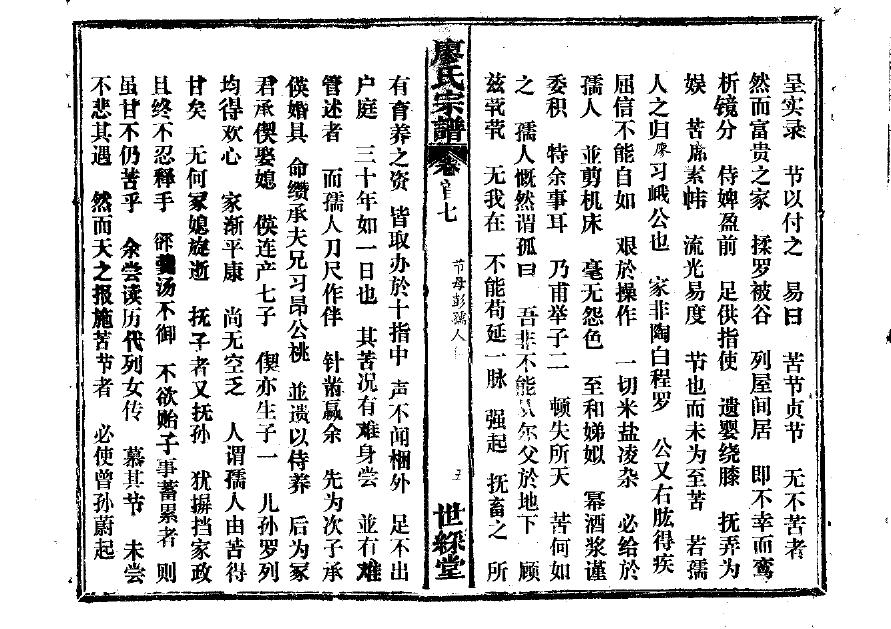 呈实录　节以付之　易曰　苦节贞节　无不苦者
然而富贵之家　揉罗被谷　列屋间居　即不幸而鸾
析镜分　侍婢盈前　足供指使　遗婴绕膝　抚弄为
娱　苦席素帏　流光易度　节也而未为至苦　若孺
人之归廖习峨公也　家非陶白程罗　公又右肱得疾
屈信不能自如　艰於操作　一切米盐凌杂　必给於
孺人　並剪机床　毫无怨色　至和娣姒　幂酒浆谨
委积　特余事耳　乃甫举子二　顿失所天　苦何如
之　孺人慨然谓孤曰　吾非不能从尔父於地下　顾
兹茕茕　无我在　不能苟延一脉　强起　抚畜之　所
廖氏宗譜 卷首七 节母彭孺人 五 世綵堂
有育养之资　皆取办於十指中　声不闻梱外　足不出
户庭　三十年如一日也　其苦况有难身尝　並有难
管述者　而孺人刀尺作伴　针黹赢余　先为次子承
偀婚具　命缵承夫兄习昂公桃　並遗以侍养　后为冢
君承偰娶媳　偀连产七子　偰亦生子一　儿孙罗列
均得欢心　家渐平康　尚无空乏　人谓孺人由苦得
甘矣　无何冢媳旋逝　抚子者又抚孙　犹摒挡家政
且终不忍释手　羹汤不御　不欲贻子事蓄累者　则
虽甘不仍苦乎　余尝读历代列女传　慕其节　未尝
不悲其遇　然而天之报施苦节者　必使曾孙蔚起